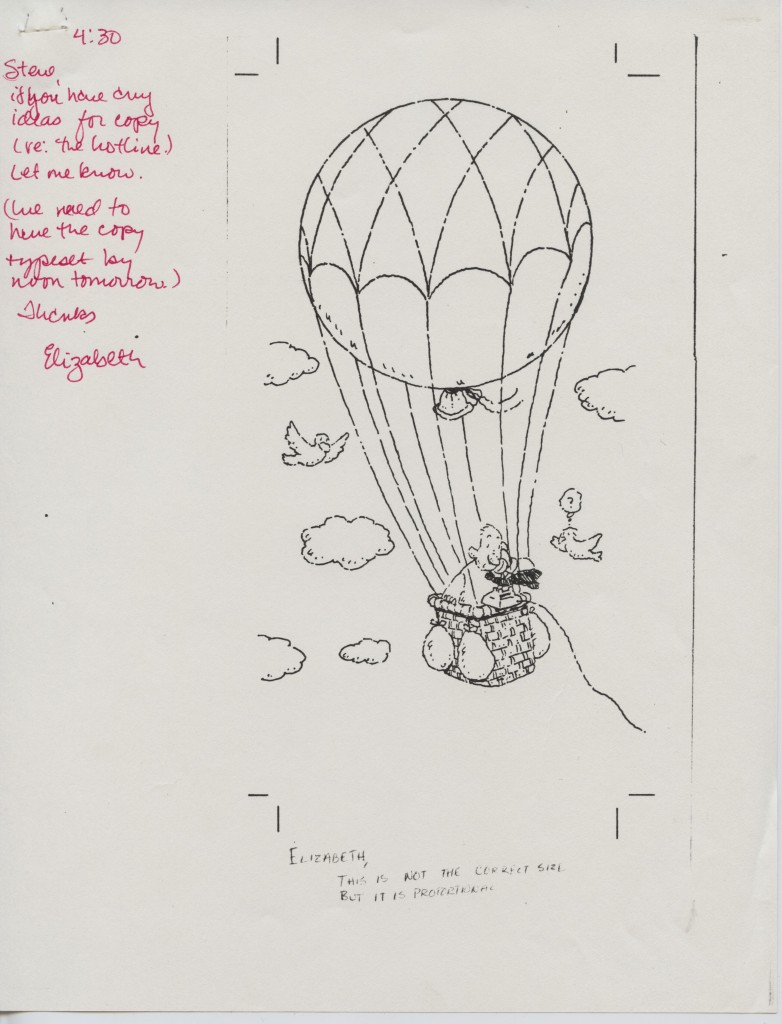 4:30
Steve,
if you have any
ideas for copy
(re: the hotline.)
Let me know.
(We need to
have the copy
typeset by
noon tomorrow.)
Thanks
Elizabeth
?
ELIZABETH,
THIS IS NOT THE CORRECT SIZE
BUT IT IS PROPORTIONAL